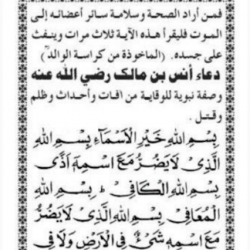 فمن أراد الصحة وسلامة سائر أعضائه إلى
الموت فليقرأ هذه الآية ثلاث مرات وينفث
على جسده. (المأخوذة من كراسة الوالد)
دعاء أنس بن مالك رضي الله عنه
وصفة نبوية للوقاية من آفات وأحداث وظلم
وقتل.
بِسْمِ اللهِ خَيْرِ الْاَسْمَاءِ بِسْمِ اللهِ
الَّذِىْ لَا يَضُرُّ مَعَ اسْمِهٖ اَذًى
بِسْمِ اللهِ الْكَافِىْ بِسْمِ اللهِ
الْمُعَافِىْ بِسْمِ اللهِ الَّذِىْ لَا يَضُرُّ
مَعَ اسْمِهٖ شَىْءٌ فِى الْاَرْضِ وَلَا فِى